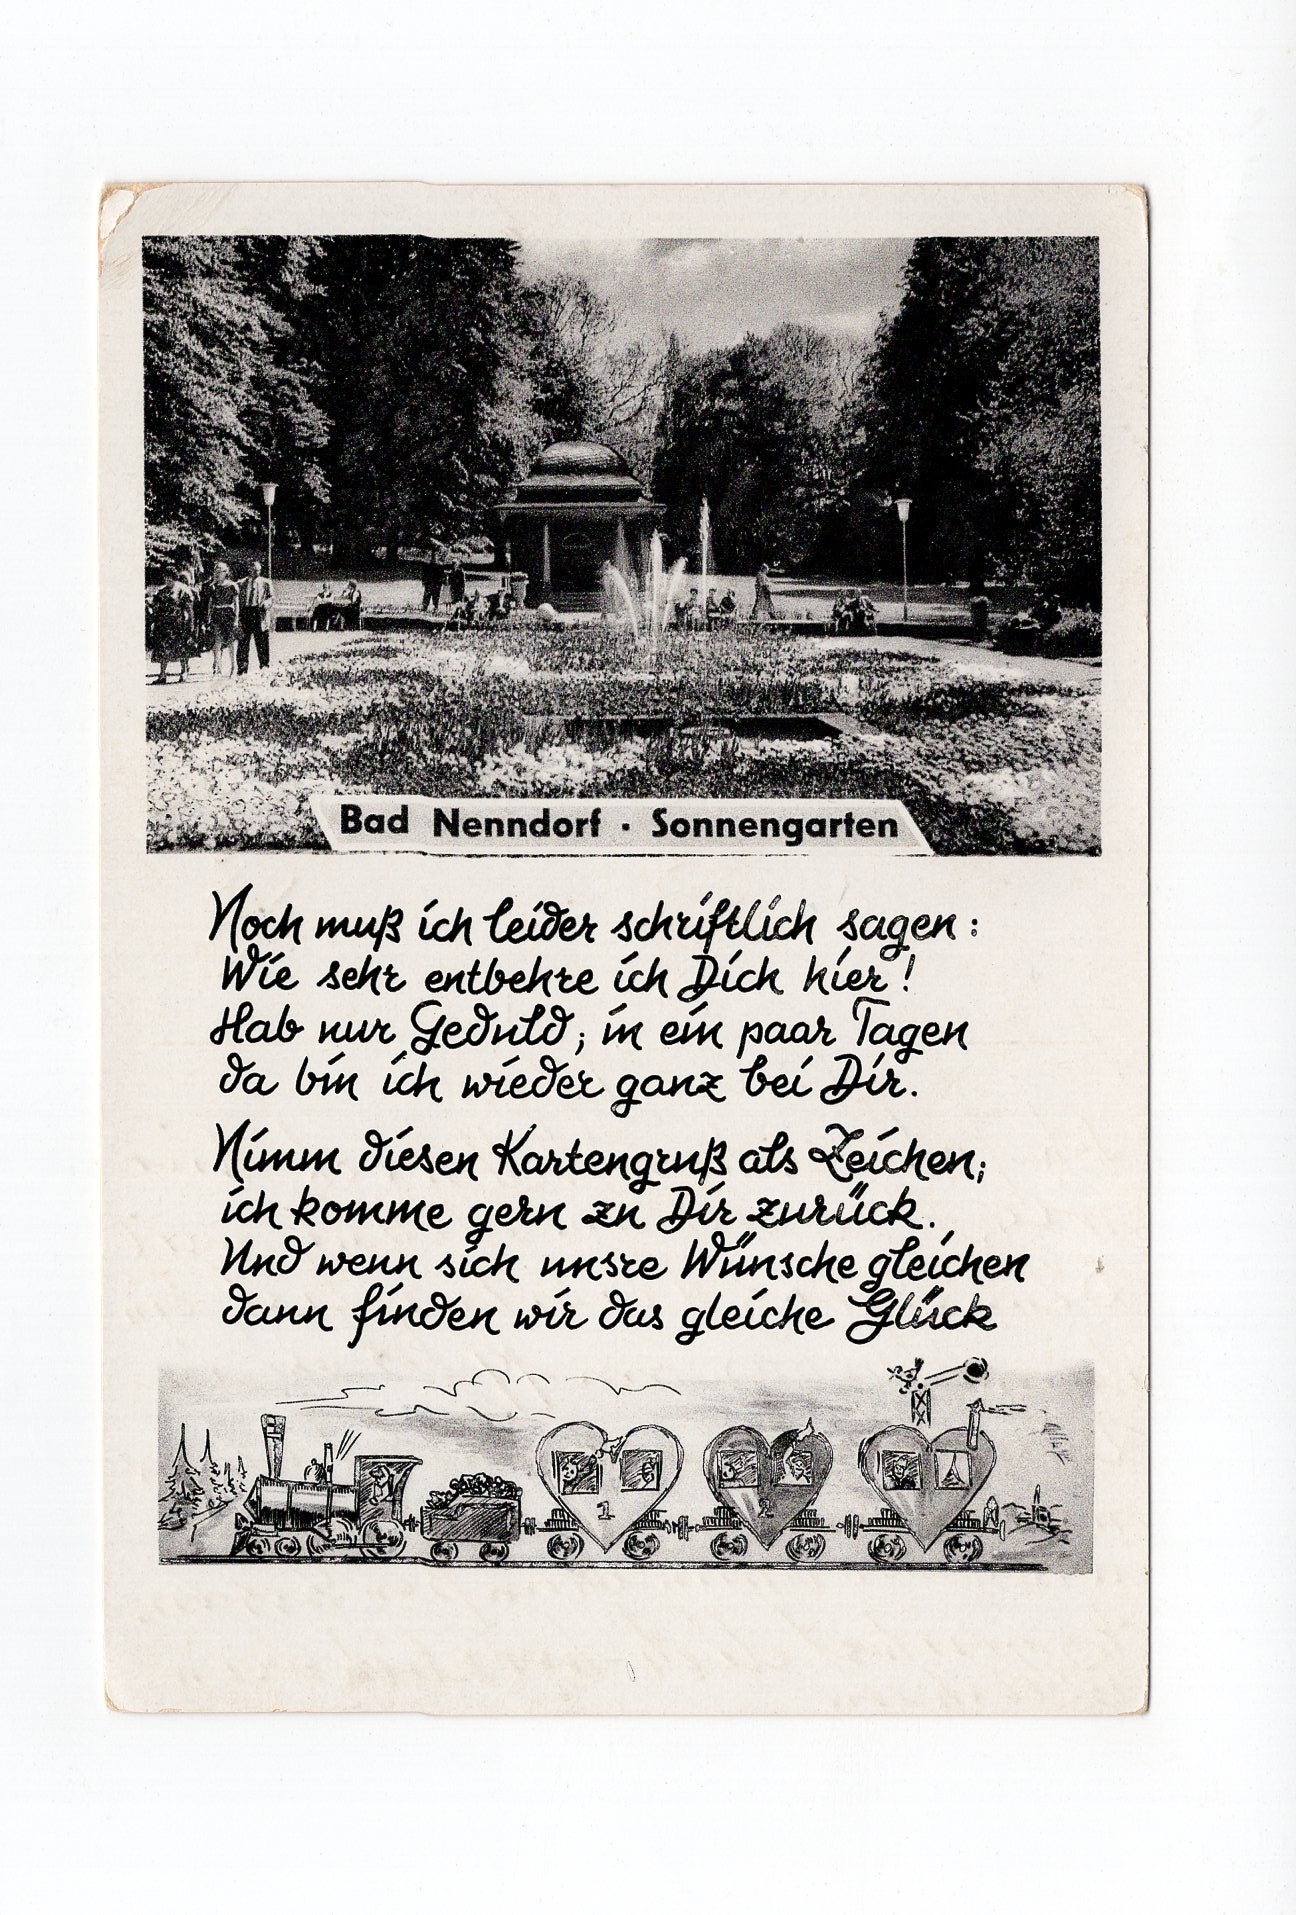 Bad Nenndorf · Sonnengarten
Noch muß ich leider schriftlich sagen:
Wie sehr entbehre ich Dich hier!
Hab nur Geduld; in ein paar Tagen
da bin ich wieder ganz bei Dir.
Nimm diesen Kartengruß als Zeichen;
ich komme gern zu Dir zurück.
Und wenn sich unsre Wünsche gleichen
dann finden wir das gleiche Glück
1 2